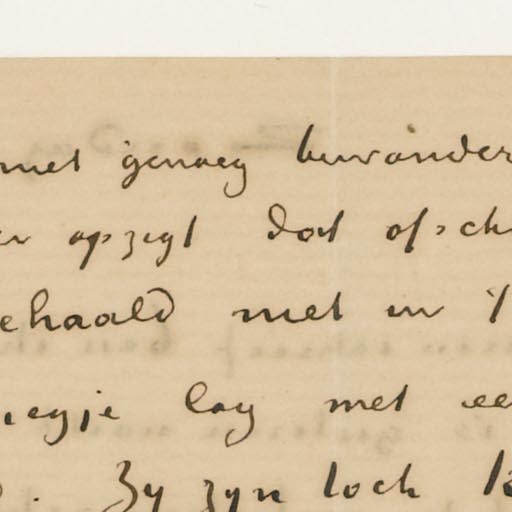 met genoeg bewonder
er opzegt dat ofsch
ehaald met in 't
iegje lag met ee
. Zy zyn toch